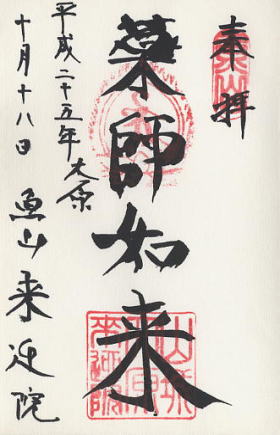 奉拝
薬師如来
平成二十五年大原
十月十八日 魚山来迎院